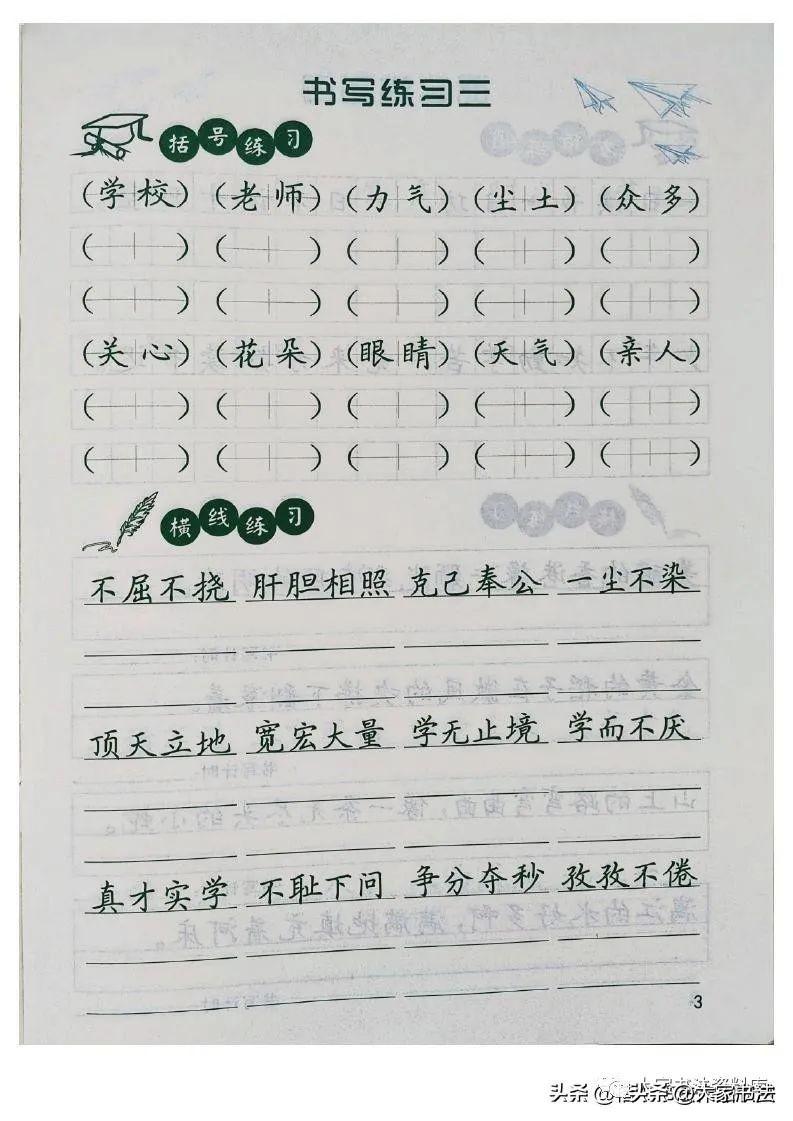 书写练习三
括号练习
(学校) (老师) (力气) (尘土) (众多)
(   ) (   ) (   ) (   ) (   )
(   ) (   ) (   ) (   ) (   )
(关心) (花朵) (眼睛) (天气) (亲人)
(   ) (   ) (   ) (   ) (   )
(   ) (   ) (   ) (   ) (   )
横线练习
不屈不挠 肝胆相照 克己奉公 一尘不染
顶天立地 宽宏大量 学无止境 学而不厌
真才实学 不耻下问 争分夺秒 孜孜不倦
3
头条@大家书法